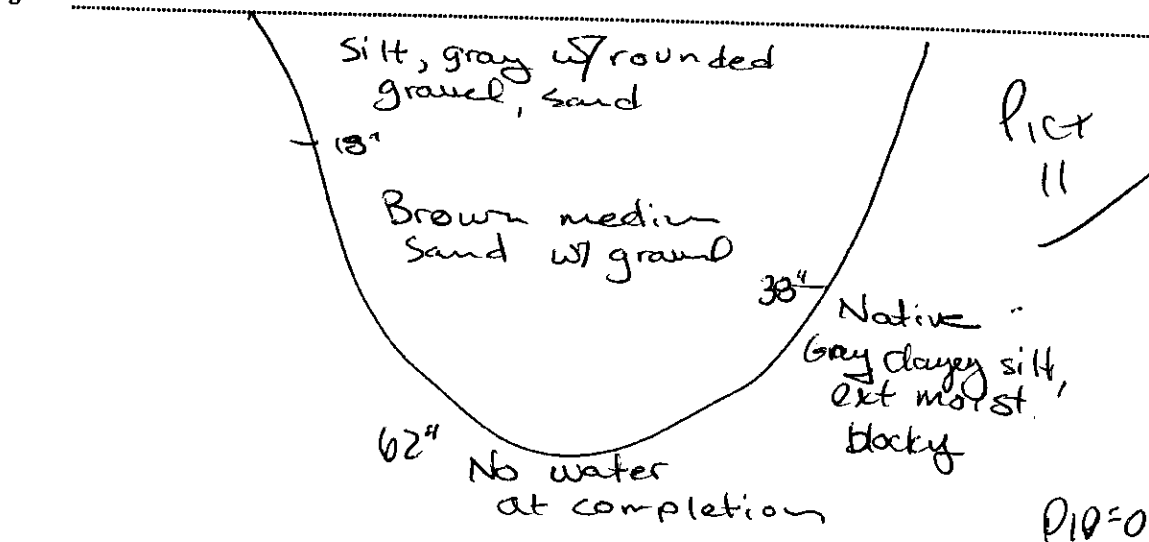 Silt, gray w/ rounded
gravel, sand
18"
Pict
11
Brown medium
sand w/ gravel
38"
Native
Gray clayey silt,
ext moist
blocky
62"
No water
at completion
PID=0